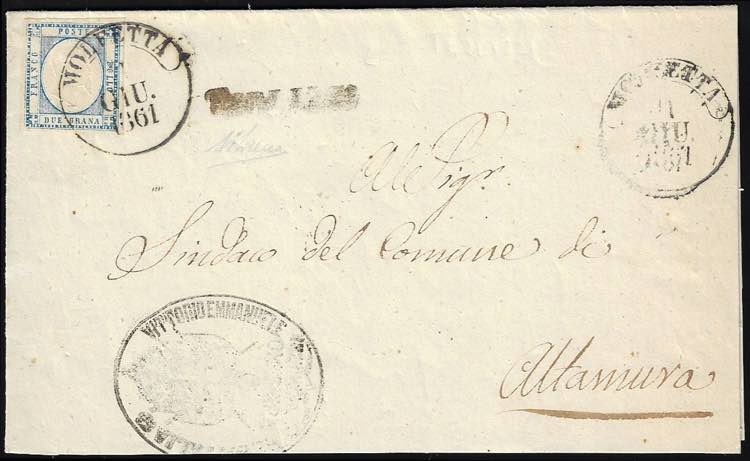 POSTE
FRANCO
BOLLO
DUE GRANA
MOLFETTA
1
GIU.
1861
MOLFETTA
1
GIU.
1861
Al Sigr.
Sindaco del Comune di
Altamura
VITTORIO EMMANUELE